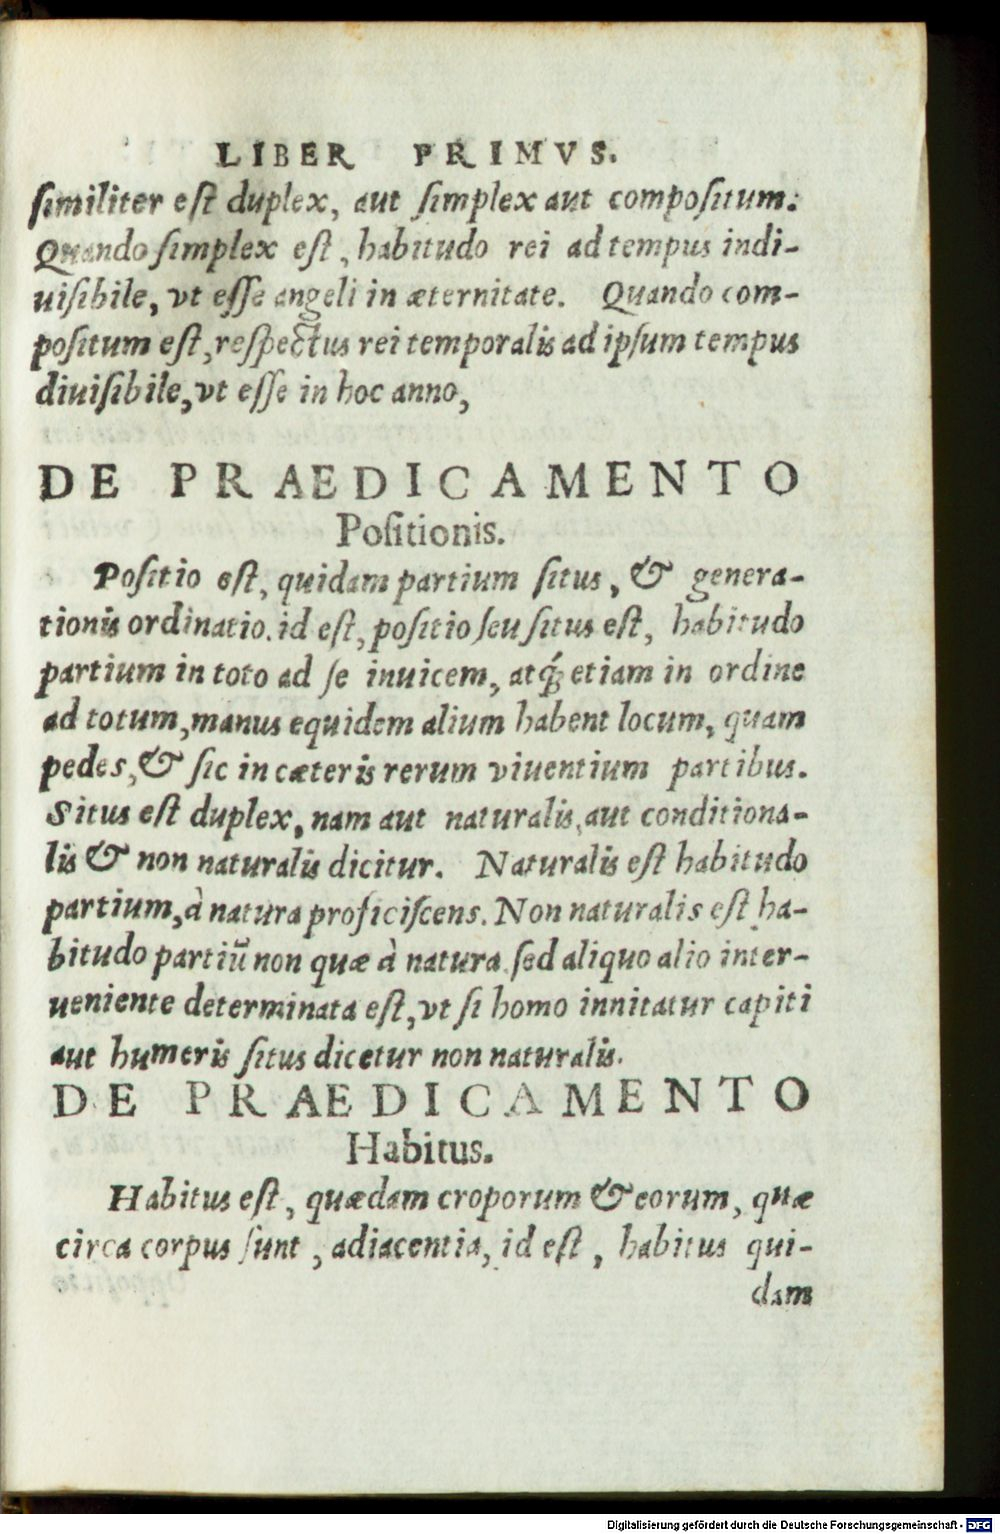 LIBER PRIMVS.
ſimiliter eſt duplex, aut ſimplex aut compoſitum:
Quando ſimplex eſt, habitudo rei ad tempus indi-
uiſibile, vt eſſe angeli in æternitate. Quando com-
poſitum eſt, reſpectus rei temporalis ad ipſum tempus
diuiſibile, vt eſſe in hoc anno,
DE PRAEDICAMENTO
Poſitionis.
Poſitio eſt, quidam partium ſitus, & genera-
tionis ordinatio. id eſt, poſitio ſeu ſitus eſt, habitudo
partium in toto ad ſe inuicem, atq́; etiam in ordine
ad totum, manus equidem alium habent locum, quam
pedes, & ſic in cæteris rerum viuentium partibus.
Situs eſt duplex, nam aut naturalis, aut conditiona-
lis & non naturalis dicitur. Naturalis eſt habitudo
partium, à natura proficiſcens. Non naturalis eſt ha-
bitudo partiū non quæ à natura ſed aliquo alio inter-
ueniente determinata eſt, vt ſi homo innitatur capiti
aut humeris ſitus dicetur non naturalis.
DE PRAEDICAMENTO
Habitus.
Habitus eſt, quædam croporum & eorum, quæ
circa corpus ſunt, adiacentia, id eſt, habitus qui-
dam
Digitalisierung gefördert durch die Deutsche Forschungsgemeinschaft - DFG